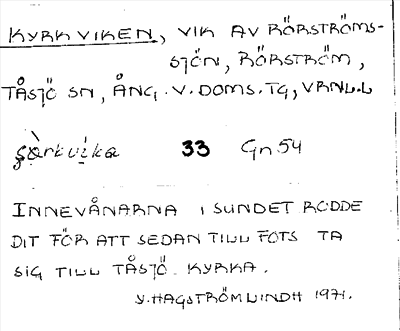 KYRKVIKEN, VIK AV RÖRSTRÖMS-
SJÖN, RÖRSTRÖM,
TÅSJÖ SN, ÅNG. V. DOMS. TG, VRNL.L
33 Gn 54
INNEVÅNARNA I SUNDET RODDE
DIT FÖR ATT SEDAN TILL FOTS TA
SIG TILL TÅSJÖ KYRKA.
Y. HAGSTRÖM LINDH 1971.